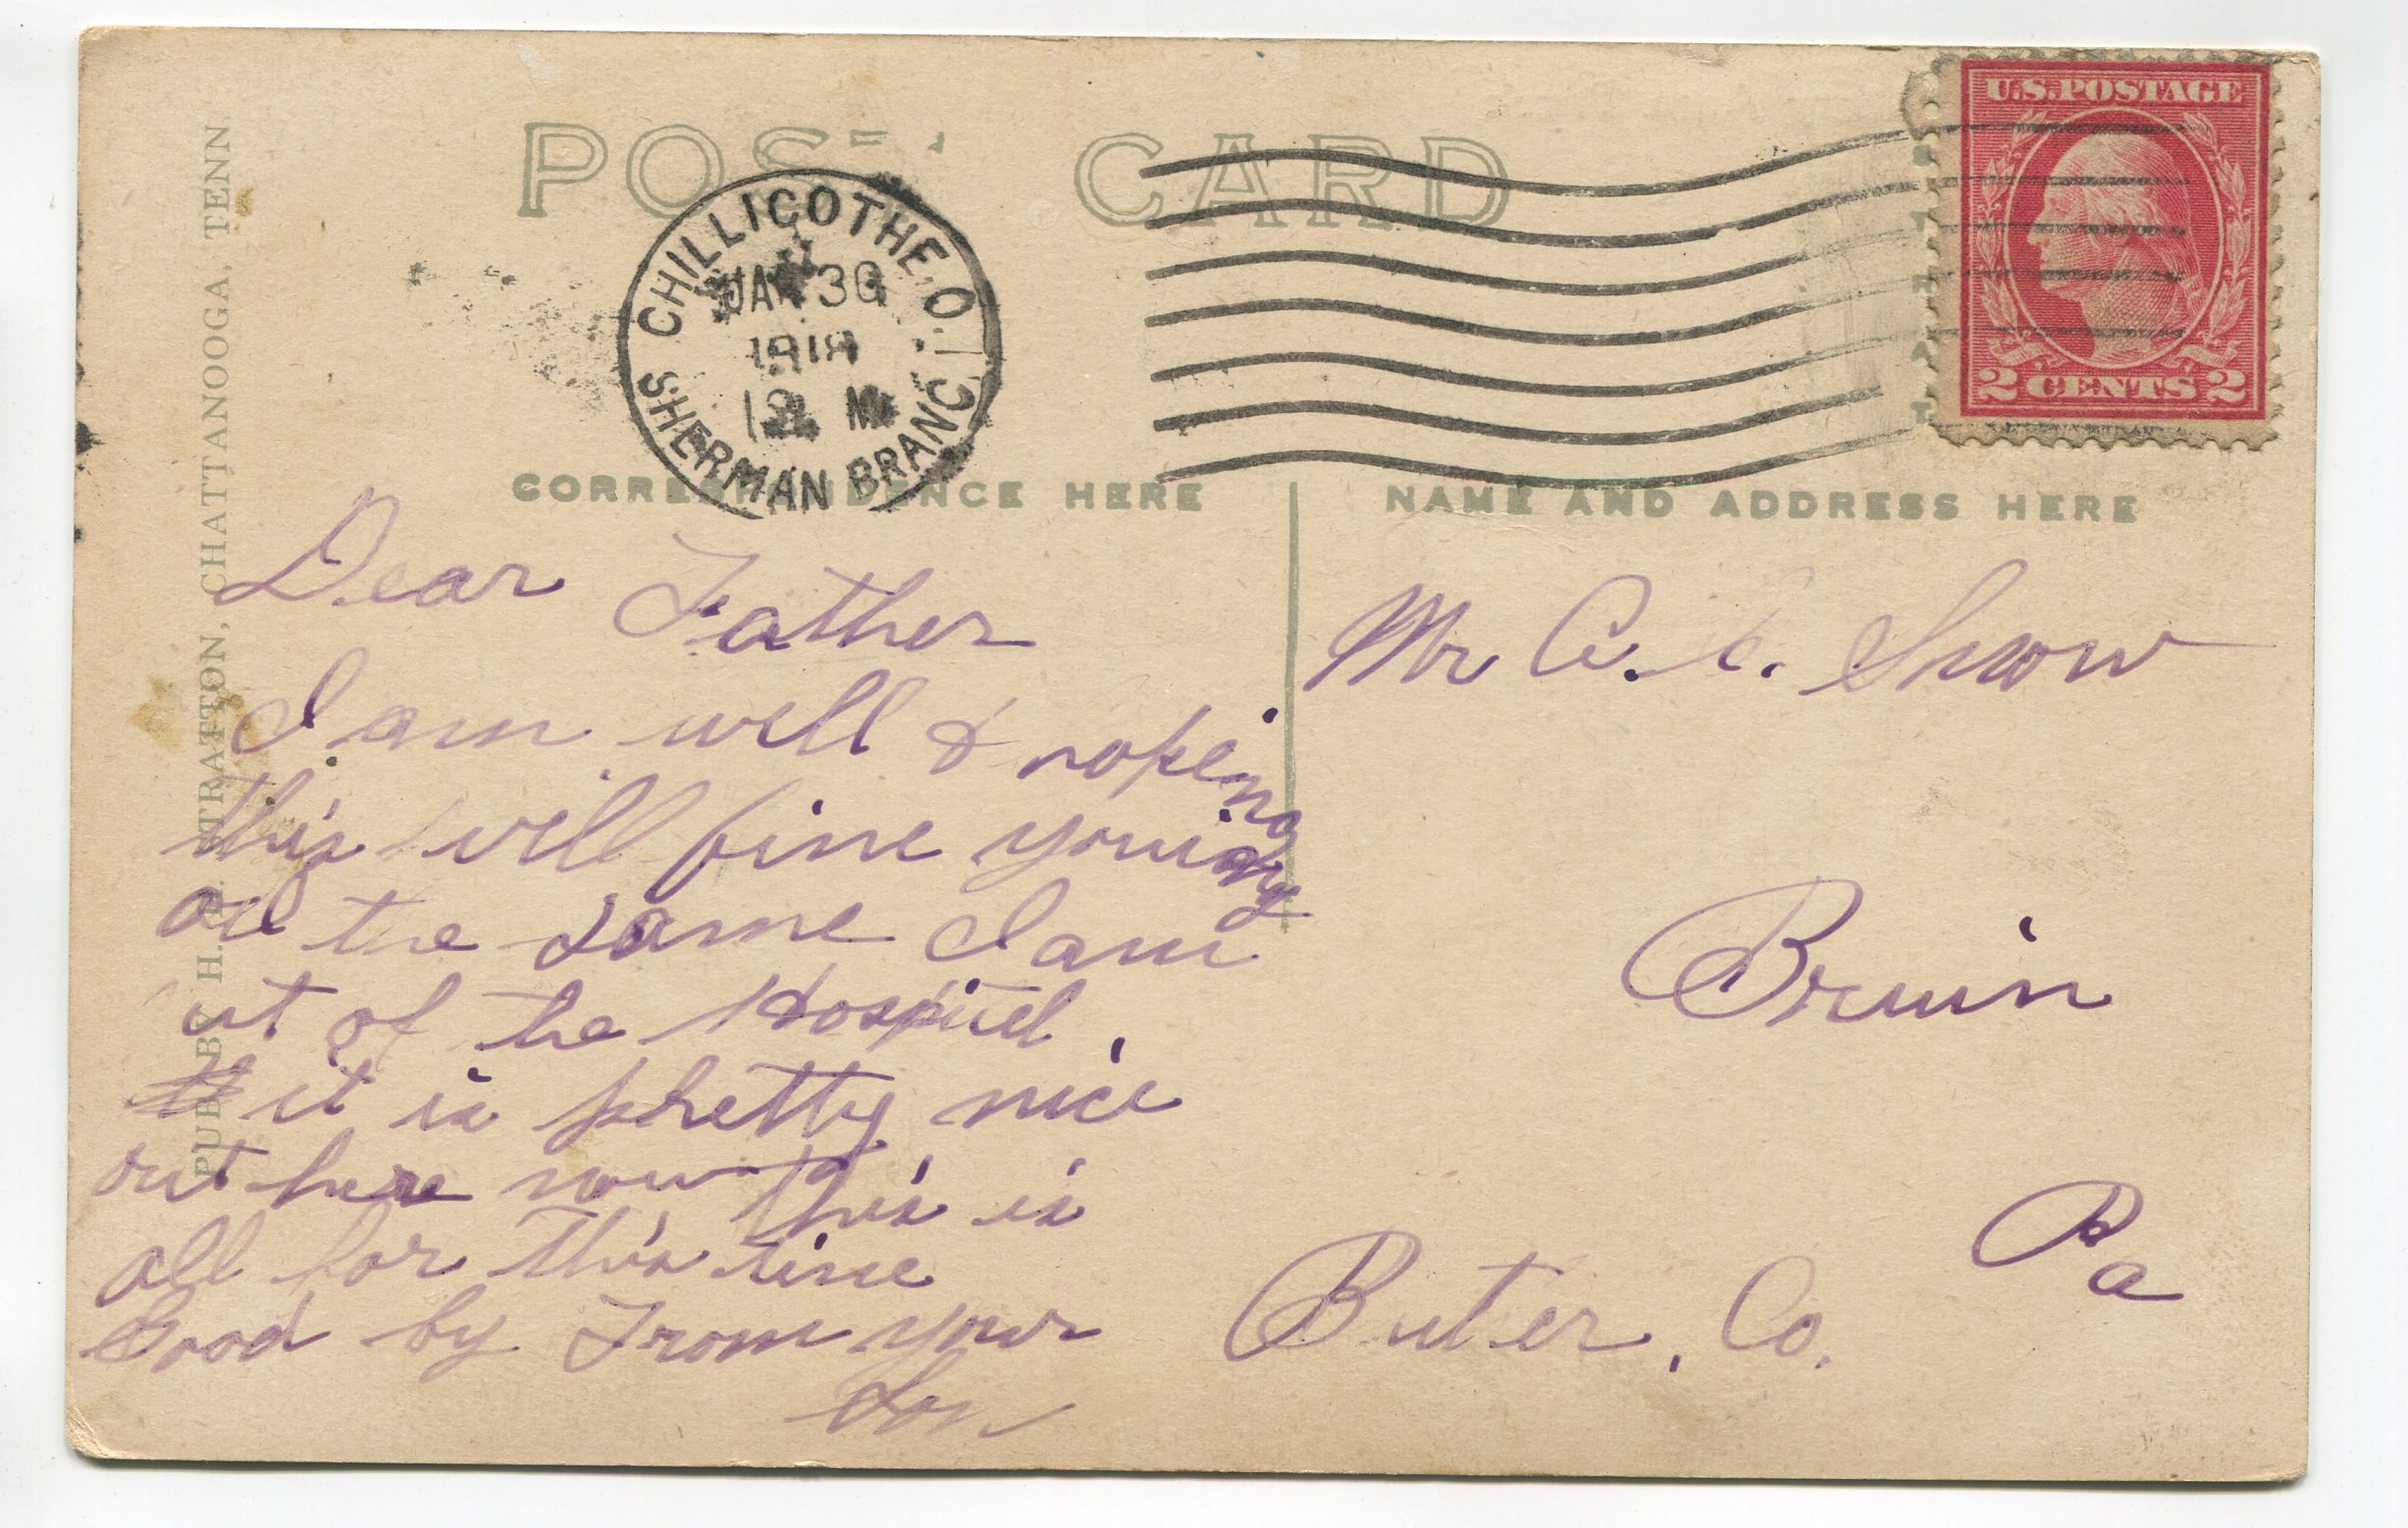 POST CARD
U.S. POSTAGE
2 CENTS 2
CHILLICOTHE, O.
JAN 30
1918
12 M
SHERMAN BRANCH
CORRESPONDENCE HERE
NAME AND ADDRESS HERE
PUB. BY H. STRATTON, CHATTANOOGA, TENN.
Dear Father
I am well & hoping
this will fine you
all the same I am
out of the Hospitel,
it is phetty nice
out here now this is
all for this time
Good by From your
Son
Mr C. Snow
Bruin
Buter, Co. Pa